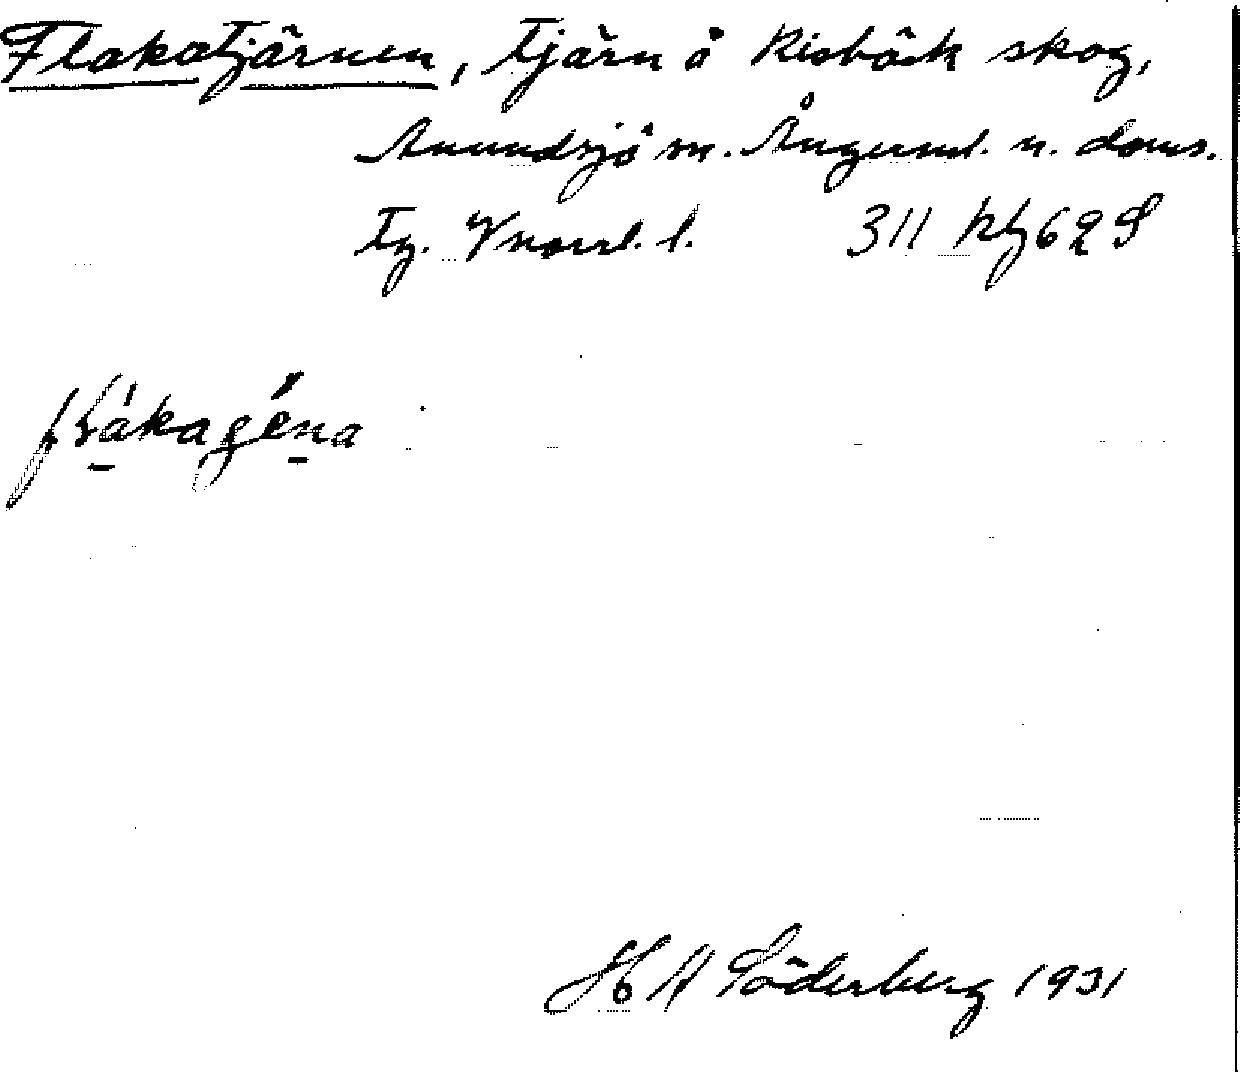 Flakatjärnen, tjärn å Risbäck skog,
Anundsjö sn. Ångerml. n. doms.
Tg. Vnorrl. l. 311 Kfj 62 S
H A Söderberg 1931